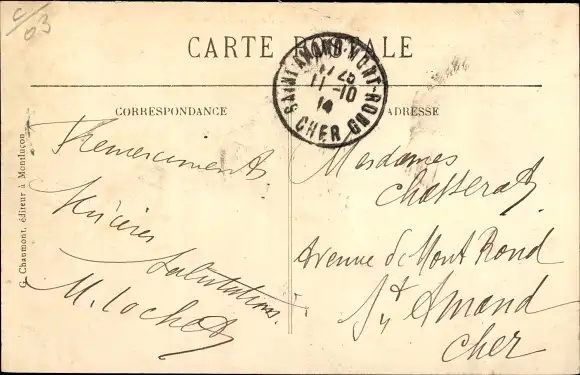 C/03
CARTE POSTALE
SAINT-AMAND-MONT-ROND
17 25
11-10
14
CHER
CORRESPONDANCE
ADRESSE
G. Chaumont, éditeur à Montluçon
Remerciments
sincères
salutations.
M. Lochet
Mesdames
Chasserat
Avenue de Mont Rond
St Amand
Cher